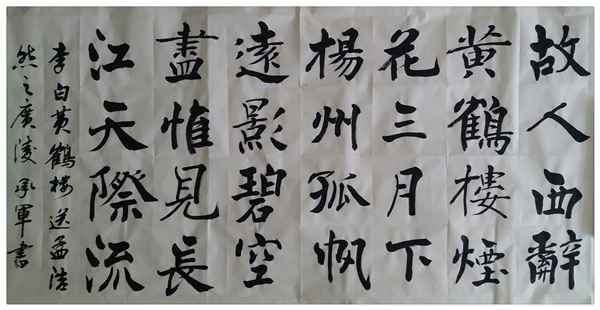 故人西辭
黄鶴樓煙
花三月下
楊州孤帆
遠影碧空
盡惟見長
江天際流
李白黄鶴樓送孟浩
然之廣陵 承軍書